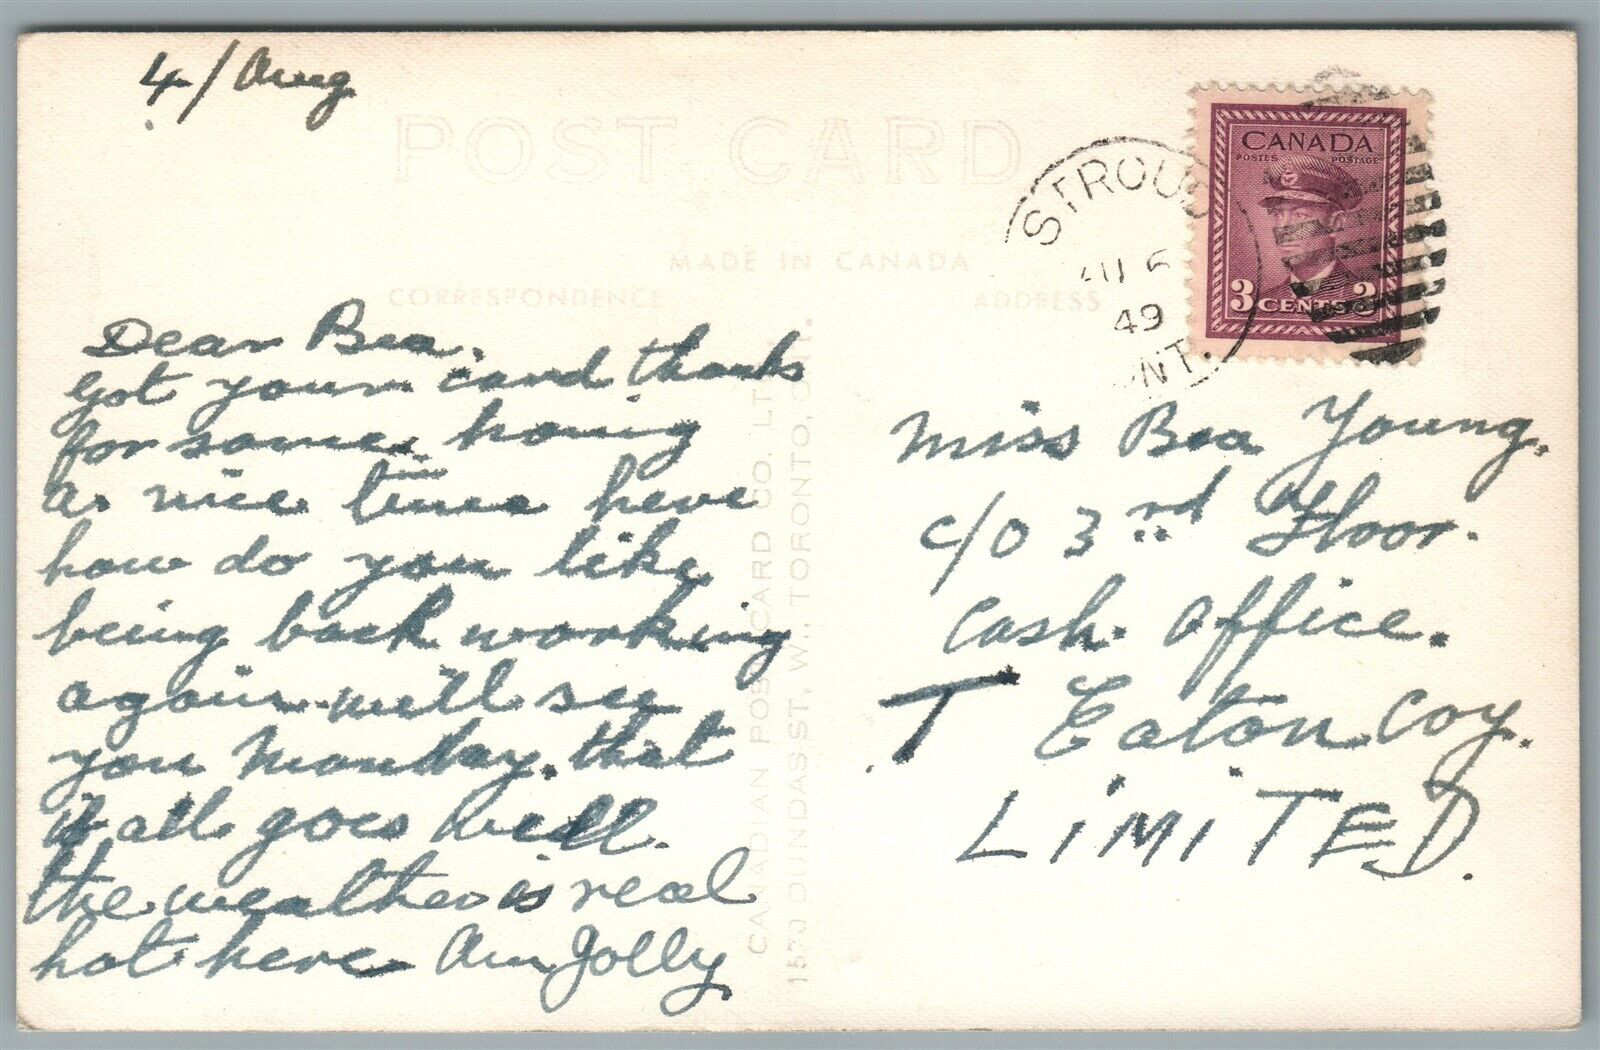 4/Aug
POST CARD
MADE IN CANADA
CORRESPONDENCE
ADDRESS
Dear Bea.
got your card thanks
for same. having
a nice time here
how do you like
being back working
again. we'll see
you Monday. that
is all goes well.
the weather is real
hot here am Jolly
CANADIAN POST CARD CO. LTD.
1570 DUNDAS ST. W., TORONTO, ONT.
STROUD
AU 5
49
ONT.
CANADA
POSTES POSTAGE
3 CENTS 3
Miss Bea Young.
c/o 3rd Floor.
Cash. Office.
T Eaton Coy.
LIMITED.